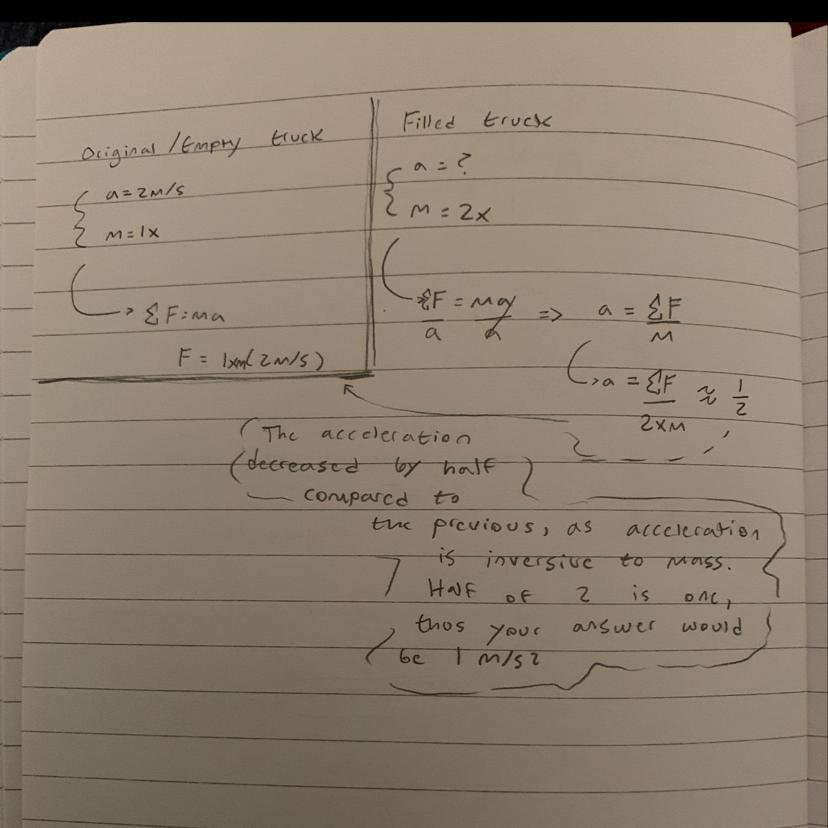 Original/Empty truck
a=2m/s
m=1x
ΣF=ma
F = 1xm(2m/s)
Filled truck
a=?
m=2x
ΣF = ma => a = ΣF
a a m
a = ΣF ≈ 1
2xm 2
The acceleration
decreased by half
compared to
the previous, as acceleration
is inversive to mass.
Half of 2 is one,
thus your answer would
be 1 m/s2